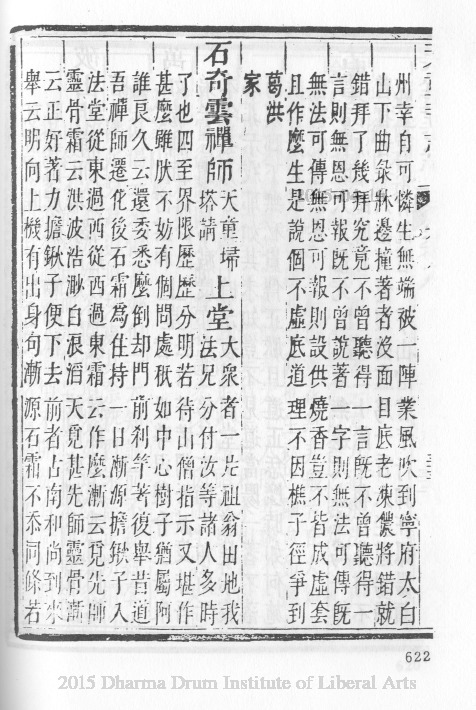 州幸自可憐生無端被一陣業風吹到寧府太白
山下曲彔牀邊撞著者沒面目底老凍儂將錯就
錯拜了幾拜究竟不曾聽得一言既不曾聽得一
言則無恩可報既不曾說著一字則無法可傳既
無法可傳無恩可報則設供燒香豈不皆成虛套
且作麼生是說個不虛底道理不因樵子徑爭到
葛洪
家
石奇雲禪師天童埽上堂大眾者一片祖翁田地我
塔請法兄分付汝等諸人多時
了也四至界限歷歷分明若待山僧指示又堪作
甚麼雖肰不妨有個問處秖如中心樹子猶屬阿
誰良久云還委悉麼倒却門前刹竿著復舉昔道
吾禪師遷化後石霜為住持一日漸源擔鍬子入
法堂從東過西從西過東霜云作麼漸云覓先師
靈骨霜云洪波浩渺白浪滔天覓甚先師靈骨漸
云正好著力擔鍬子便下去前者占南和尚到來
舉云明向上機有出身句漸源石霜不忝同條若
622
2015 Dharma Drum Institute of Liberal Arts